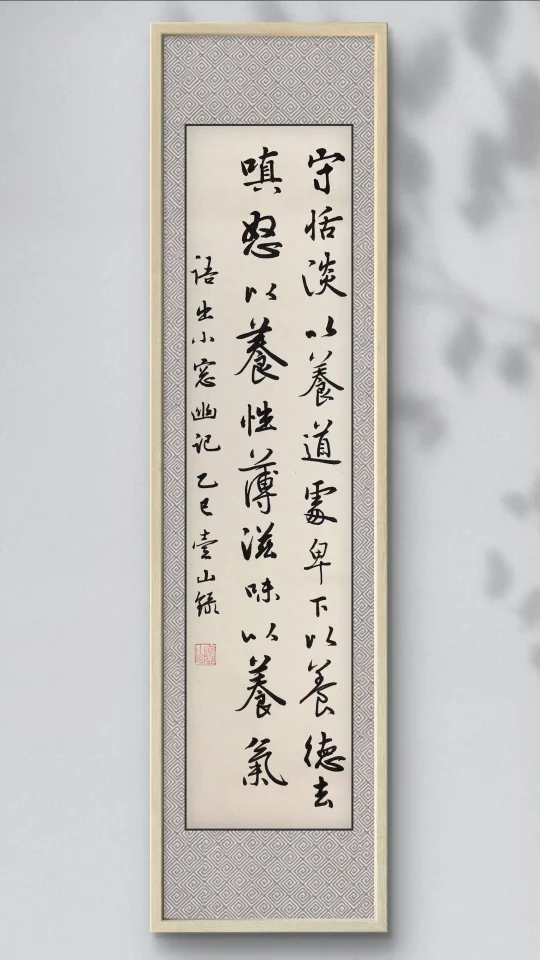 守恬淡以養道處卑下以養德去
嗔怒以養性薄滋味以養氣
語出小窓幽记乙巳壹山録